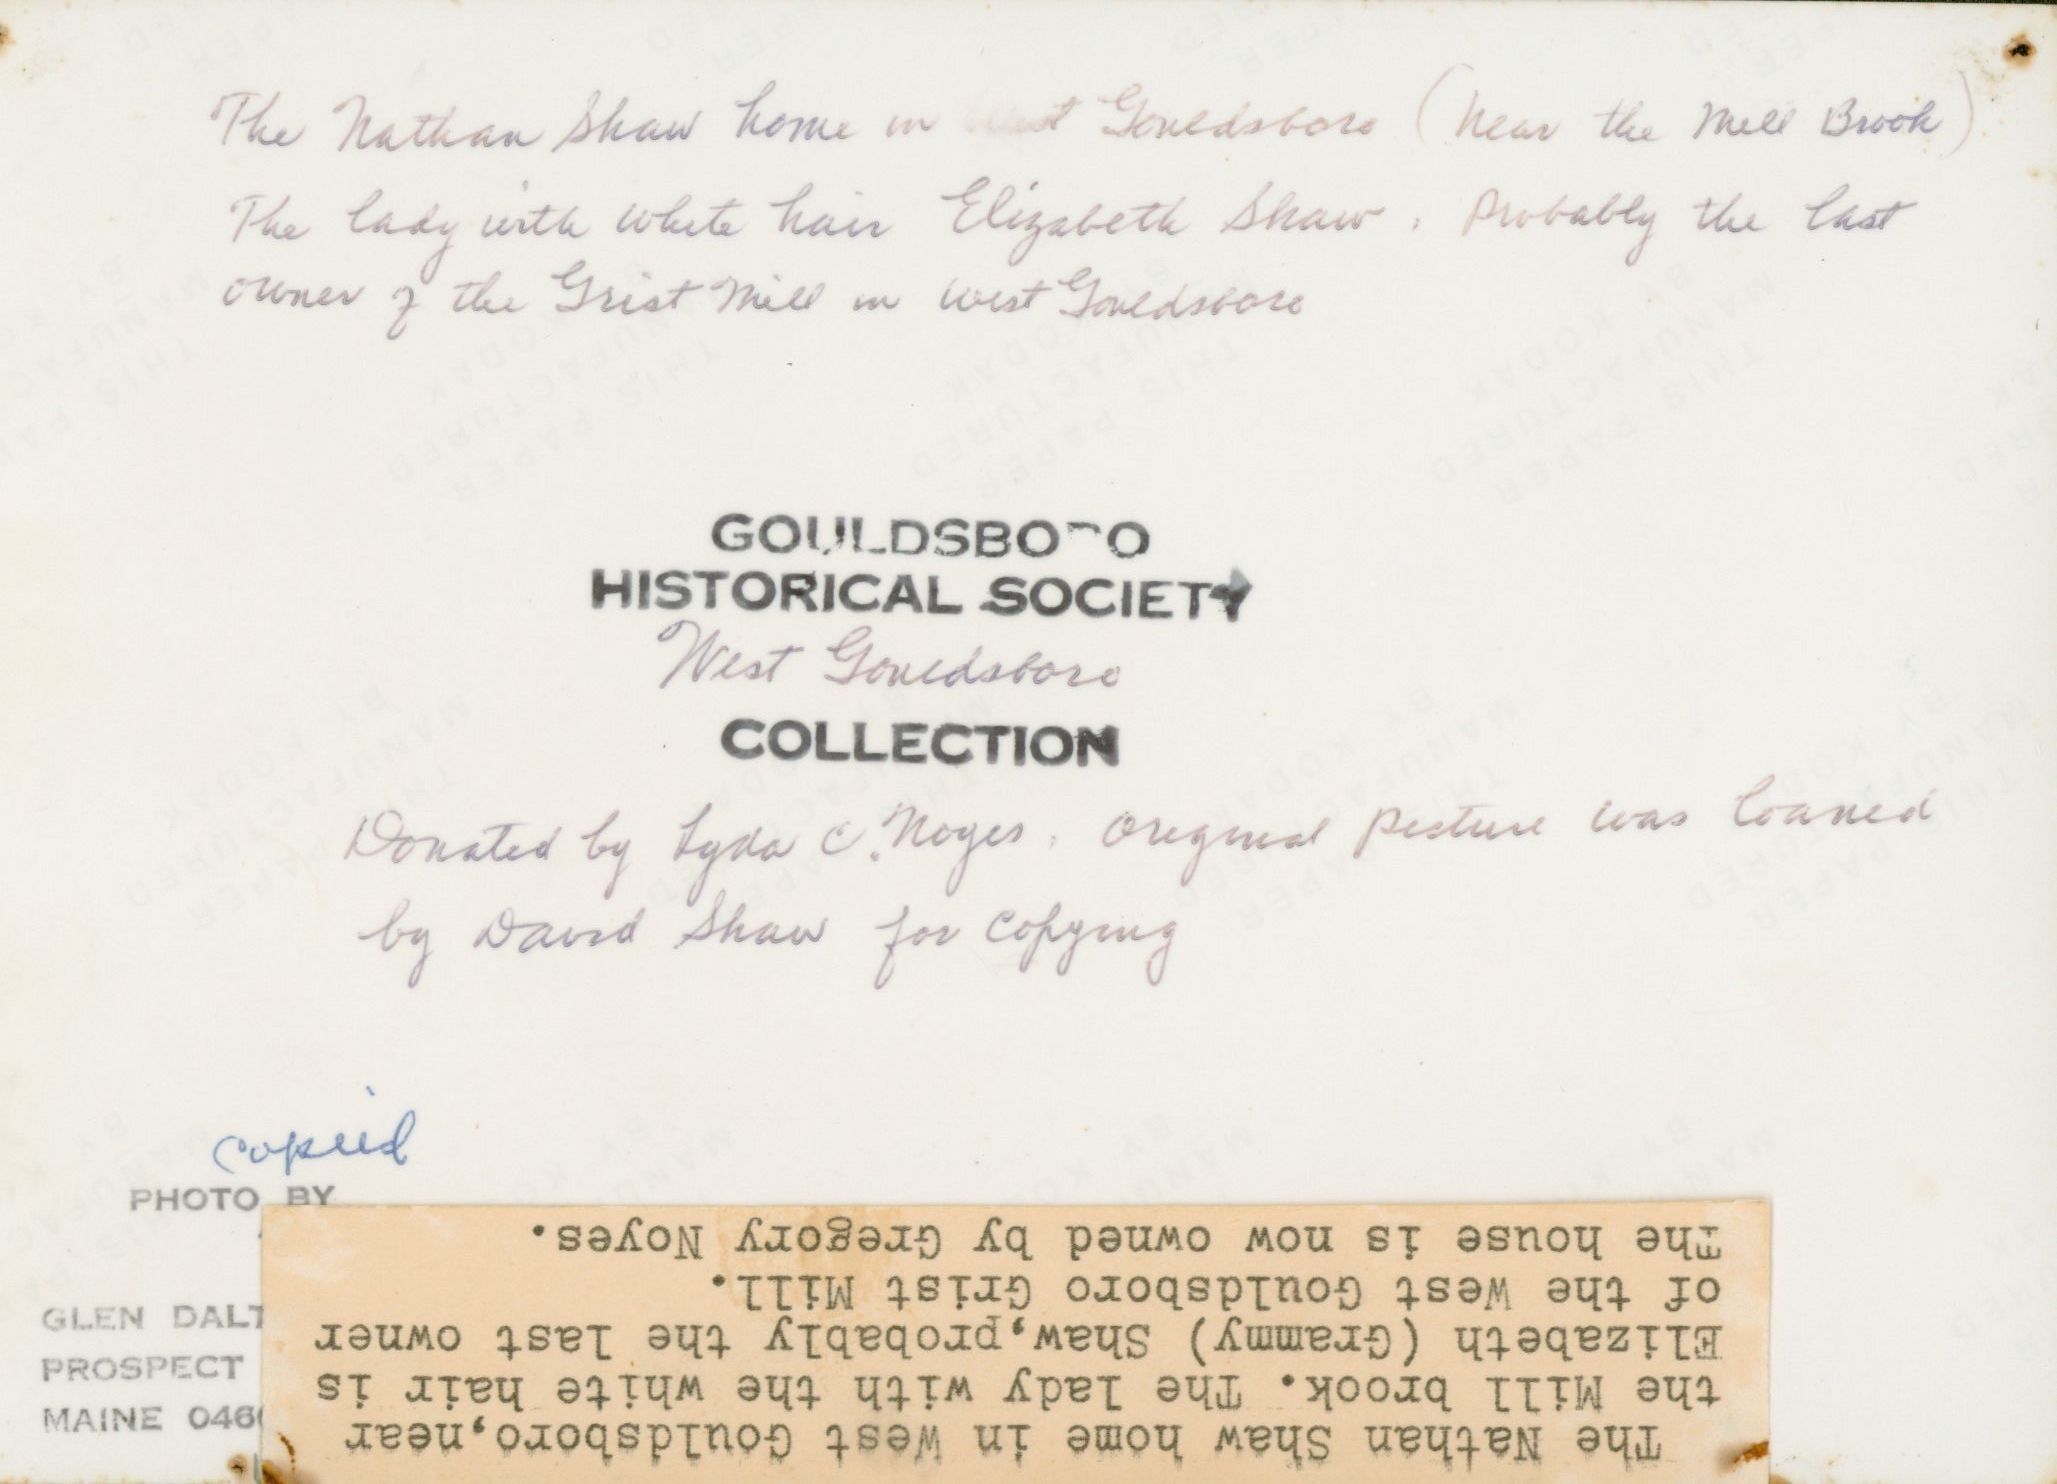 The Nathan Shaw home in West Gouldsboro (Near the Mill Brook)
The lady with white hair Elizabeth Shaw. Probably the last
owner of the Grist Mill in West Gouldsboro
GOULDSBORO
HISTORICAL SOCIETY
West Gouldsboro
COLLECTION
Donated by Lyda C. Noyes. Original Picture was loaned
by David Shaw for Copying
copied
PHOTO BY
GLEN DALT
PROSPECT
MAINE 046
The Nathan Shaw home in West Gouldsboro,near
the Mill brook. The lady with the white hair is
Elizabeth (Grammy) Shaw,probably the last owner
of the West Gouldsboro Grist Mill.
The house is now owned by Gregory Noyes.
THIS PAPER
MANUFACTURED
BY KODAK